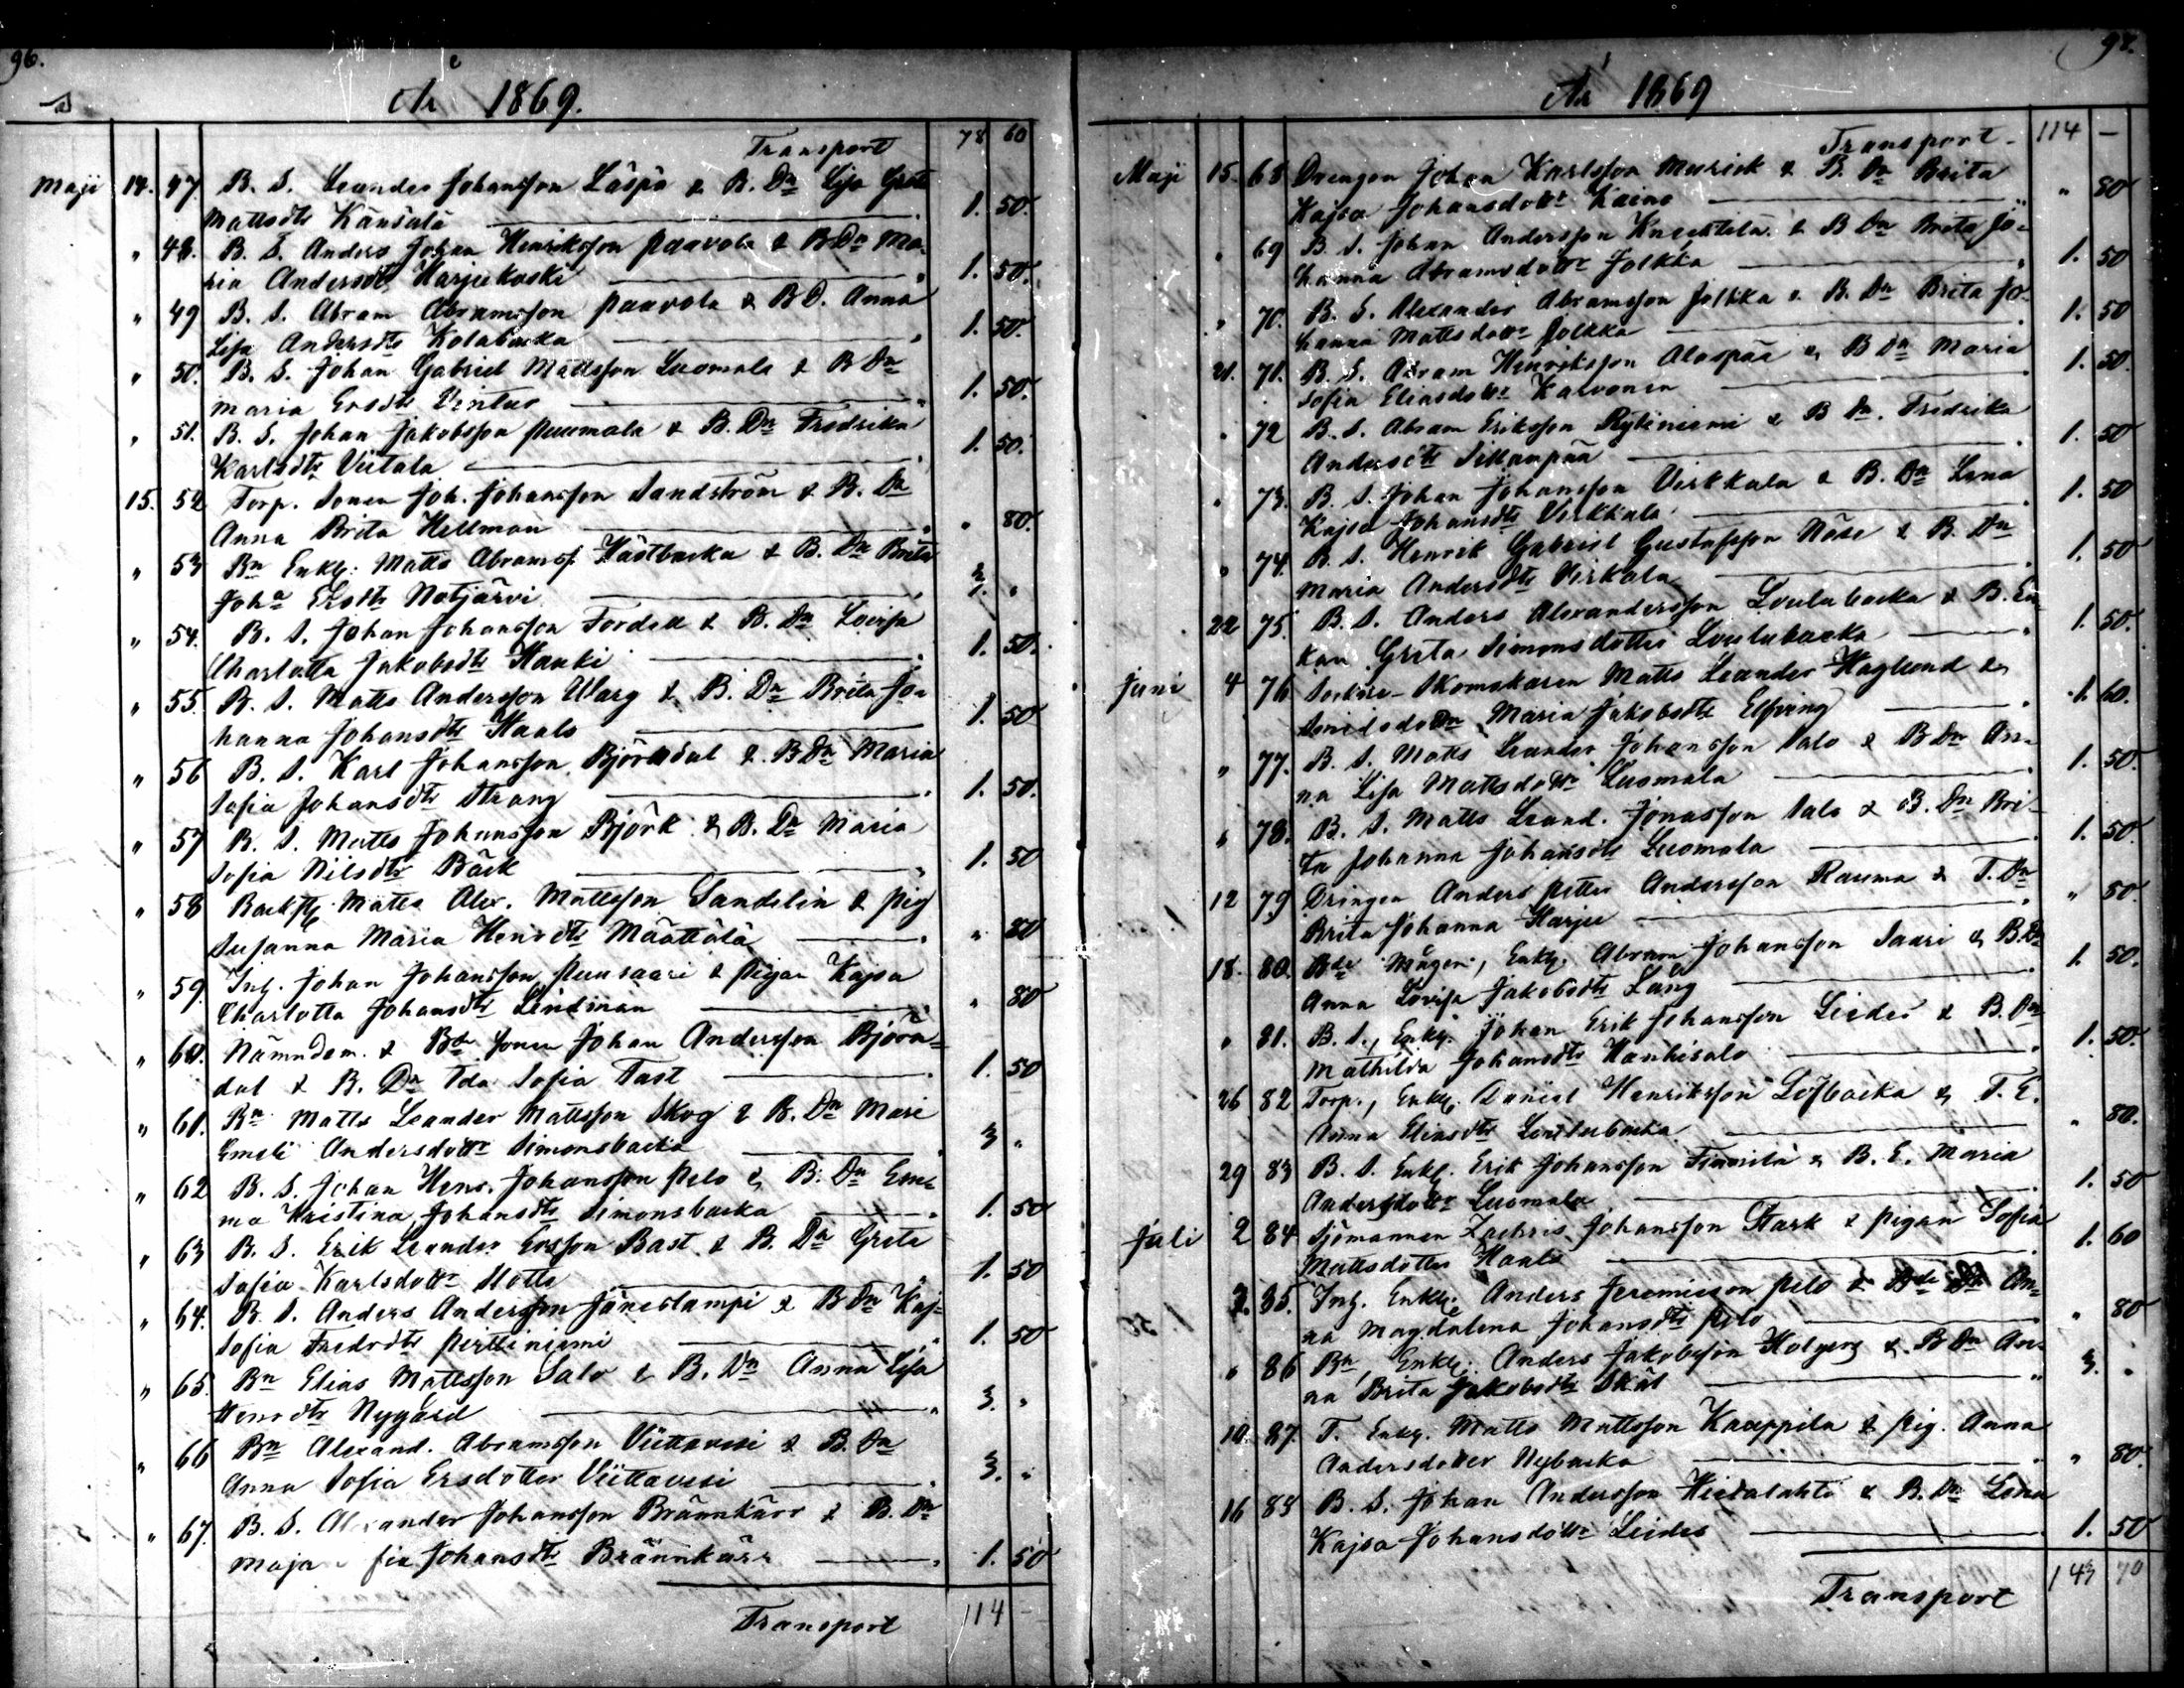 96.
År 1869.
Transport 78 60
Maji 14. 47. B. S. Leander Johansson Läspä & B. Dn Lisa Greta
Mattsdtr Känsälä 1. 50.
" 48. B. S. Anders Johan Henriksson Paavola & B Dn Ma-
ria Andersdtr Harjukoski 1. 50.
" 49 B. S. Abram Abramsson Paavola & B D. Anna
Lisa Andersdtr Kolabacka 1. 50.
" 50. B. S. Johan Gabriel Mattsson Luomala & B Dn
Maria Ersdtr Vintus 1. 50.
" 51. B. S. Johan Jakobsson Puumala & B. Dn Fredrika
Karlsdtr Viitala 1. 50.
15. 52 Torp. Sonen Joh. Johansson Sandström & B. Dn
Anna Brita Hellman " 80.
" 53 Bn Enkl: Matts Abramss. Hästbacka & B. Dn Brita
Joha Ersdtr Notjärvi 3. "
" 54. B. S. Johan Johansson Fordell & B. Dn Lovisa
Charlotta Jakobsdtr Hauki 1. 50.
" 55. B. S. Matts Andersson Warg & B. Dn Brita Jo-
hanna Johansdtr Haals 1. 50
" 56 B. S. Karl Johansson Björndal & B Dn Maria
Sofia Johansdtr Strang 1. 50.
" 57 B. S. Matts Johansson Björk & B. Dn Maria
Sofia Nilsdtr Bäck 1. 50
" 58 Matts Alex. Mattsson Sandelin & Pig
Susanna Maria Henrdtr Määttälä " 80
" 59. Inh. Johan Johansson Puusaari & Pigan Kajsa
Charlotta Johansdtr Lindman " 80
" 60. Nämndem. & Bde Sonen Johan Andersson Björn-
dal & B. Dn Ida Sofia Fast 1. 50
" 61. Bn Matts Leander Mattsson Skog & B. Dn Mari
Emeli Andersdottr Simonsbacka 3 "
" 62 B. S. Johan Henr. Johansson Pelo & B. Dn Em-
ma Kristina Johansdtr Simonsbacka 1. 50
" 63 B. S. Erik Leander Ersson Bast & B. Dn Greta
Sofia Karlsdottr Slotte 1. 50
" 64. B. S. Anders Andersson Jäneslampi & B Dn Kaj-
Sofia Fredrdtr Perttiniemi 1. 50
" 65. Bn Elias Mattsson Salo & B. Dn Anna Lisa
Henrdtr Nygård 3. "
" 66 Bn Alexand. Abramsson Viittavesi & B. Dn
Anna Sofia Ersdotter Viittavesi 3. "
" 67. B. S. Alexander Johansson Brännkärr & B. Dn
Maja fia Johansdtr Brännkärr 1. 50
Transport 114 -
97.
År 1869
Transport 114 -
Maji 15. 68 Drengen Johan Karlsson Murick & B. Dn Brita
Kajsa Johansdottr Kaino " 80
" 69 B. S. Johan Andersson Knuuttila & B Dn Brita Jo-
hanna Abramsdottr Jolkka 1. 50
" 70. B. S. Alexander Abramsson Jolkka & B. Dn Brita Jo-
hanna Mattsdottr Jolkka 1. 50
21. 71. B. S. Abram Henriksson Alaspää & B Dn Maria
Sofia Eliasdottr Karvonen 1. 50.
" 72 B. S. Abram Eriksson Kytiniemi & B Dn. Fredrika
Andersdtr Sillanpää 1. 50
" 73. B. S. Johan Johansson Virkkala & B. Dn Lena
Kajsa Johansdtr Virkkala 1. 50
" 74. B. S. Henrik Gabriel Gustafsson Näse & B. Dn
Maria Andersdtr Virkala 1. 50
22 75. B. S. Anders Alexandersson Loulubacka & B. En-
kan Greta Simonsdotter Loulubacka 1. 50.
Juni 4 76 Sockne-Skomakaren Matts Leander Haglund &
Smidsdottn Maria Jakobsdtr Elfving 1. 60.
" 77. B. S. Matts Leander Johansson Salo & B Dn An-
na Lisa Mattsdottr Luomala 1. 50.
" 78. B. S. Matts Leand. Jonasson Salo & B. Dn Bri-
ta Johanna Johansdtr Luomala 1. 50
12 79 Drängen Anders Petter Andersson Rauma & T. Dn
Brita Johanna Harju " 80.
18. 80. Bde Mågen, Enkl. Abram Johansson Saari & B. Dn
Anna Lovisa Jakobsdtr Lång 1. 50.
" 81. B. S., Enkl. Johan Erik Johansson Liedes & B. Dn
Mathilda Johansdtr Kanhisalo 1. 50.
26 82 Torp., Enkl. Daniel Henriksson Löfbacka & T. E.
Anna Eliasdtr Loulubacka " 80.
29 83 B. S. Enkl. Erik Johansson Finnilä & B. E. Maria
Andersdottr Luomala 1. 50
Juli 2 84 Sjömannen Zachris Johansson Stark & Pigan Sofia
Mattsdotter Haals 1. 60
3. 85. Inh. Enkl. Anders Jeremiasson Pelo & Bde Dn An-
na Magdalena Johansdtr Pelo " 80
" 86 Bn, Enkl. Anders Jakobsson Holgers & B Dn An-
na Brita Jakobsdtr Skål 3. "
10. 87. T. Enkl. Matts Mattsson Kaappila & Pig. Anna
Andersdotter Nybacka " 80.
16 88 B. S. Johan Andersson Hietalahti & B. Dn Lena
Kajsa Johansdottr Liedes 1. 50
Transport 143 70